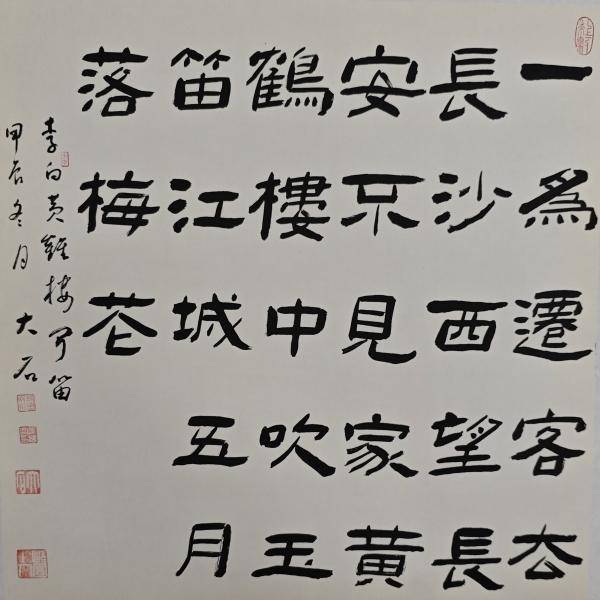 一為遷客去
長沙西望長
安不見家黃
鶴樓中吹玉
笛江城五月
落梅花
李白黃鶴樓聞笛
甲辰冬月大石